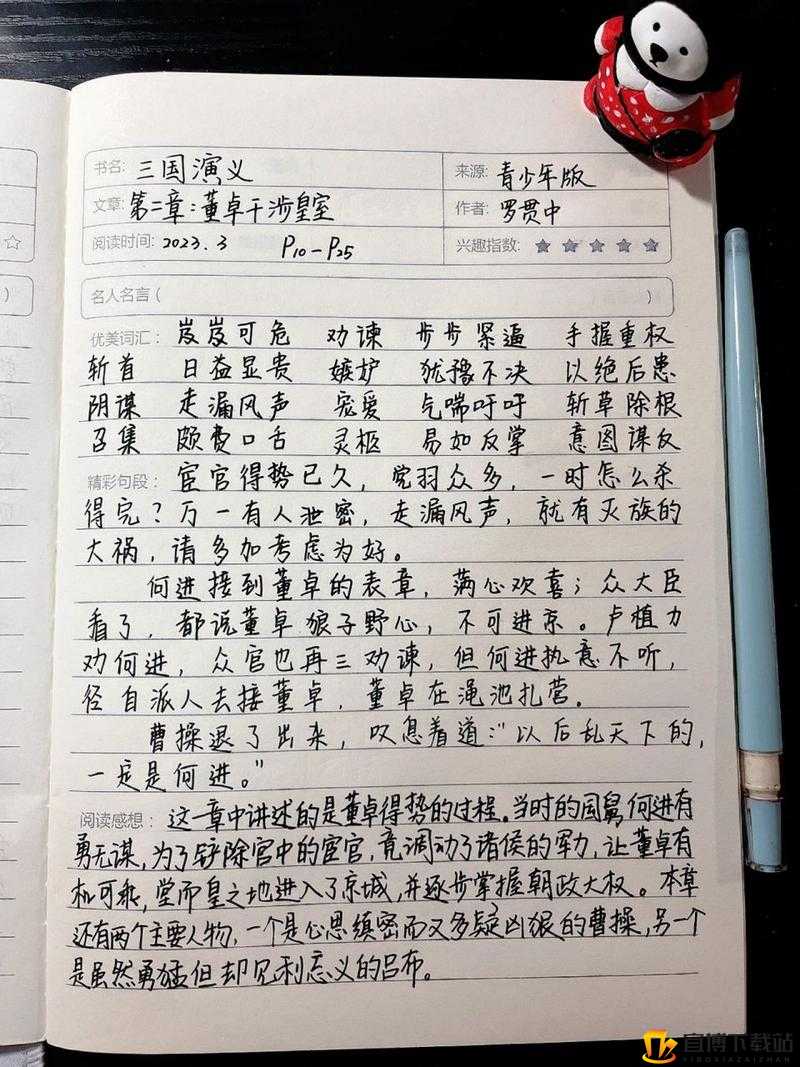 书名: 三国演义 来源: 青少年版
文章: 第二章:董卓干涉皇室 作者: 罗贯中
阅读时间: 2023.3 P10-P25 兴趣指数: ★★★★★
名人名言 ( )
优美词汇: 岌岌可危 劝谏 步步紧逼 手握重权
斩首 日益显贵 嫉妒 犹豫不决 以绝后患
阴谋 走漏风声 宠爱 气喘吁吁 斩草除根
召集 颇费口舌 灵柩 易如反掌 意图谋反
精彩句段: 宦官得势已久,党羽众多,一时怎么杀
得完?万一有人泄密,走漏风声,就有灭族的
大祸,请多加考虑为好。
何进接到董卓的表章,满心欢喜;众大臣
看了,都说董卓狼子野心,不可进京。卢植力
劝何进,众官也再三劝谏,但何进执意不听,
径自派人去接董卓,董卓在渑池扎营。
曹操退了出来,叹息着道:“以后乱天下的,
一定是何进。”
阅读感想: 这一章中讲述的是董卓得势的过程。当时的国舅何进有
勇无谋,为了铲除宫中的宦官,竟调动了诸侯的军力,让董卓有
机可乘,堂而皇之地进入了京城,并逐步掌握朝政大权。本章
还有两个主要人物,一个是心思缜密而又多疑凶狠的曹操,另一个
是虽然勇猛但却见利忘义的吕布。
宜博下载站
YIBOXIAZAIZHAN